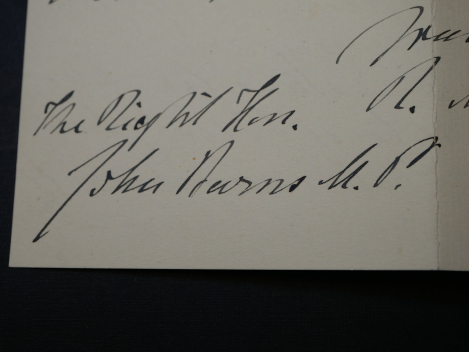 R.
The Right Hon.
John Burns M.P.